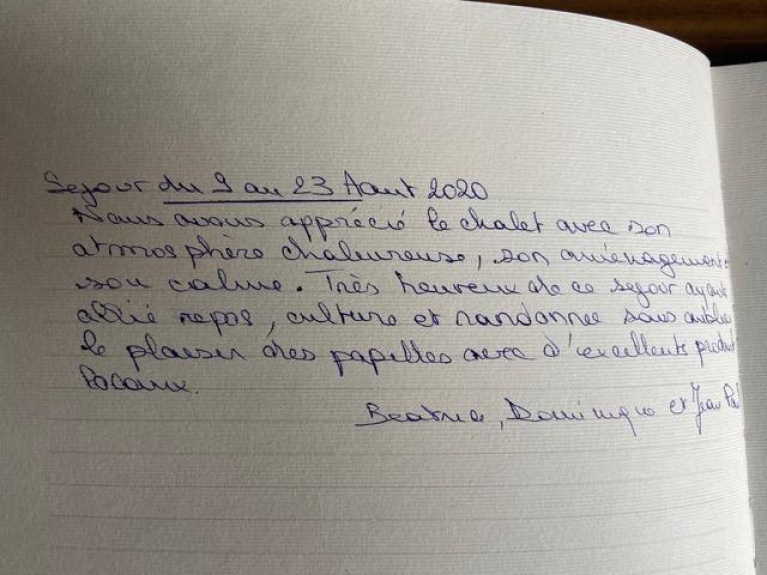 Sejour du 9 au 23 Aout 2020
Nous avons apprécié le chalet avec son
atmosphère chaleureuse, son aménagement
son calme. Très heureux de ce sejour ayant
allié repos, culture et randonnée sans oublier
le plaisir des papilles avec d'excellents produits
locaux.
Beatrice, Dominique et Jean Paul